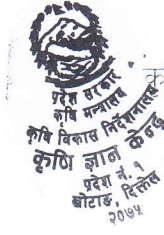 प्रदेश सरकार
कृषि मन्त्रालय
कृषि विकास निर्देशनालय
कृषि ज्ञान केन्द्र
प्रदेश नं. १
खोटाङ, दिक्तेल
२०७५
क